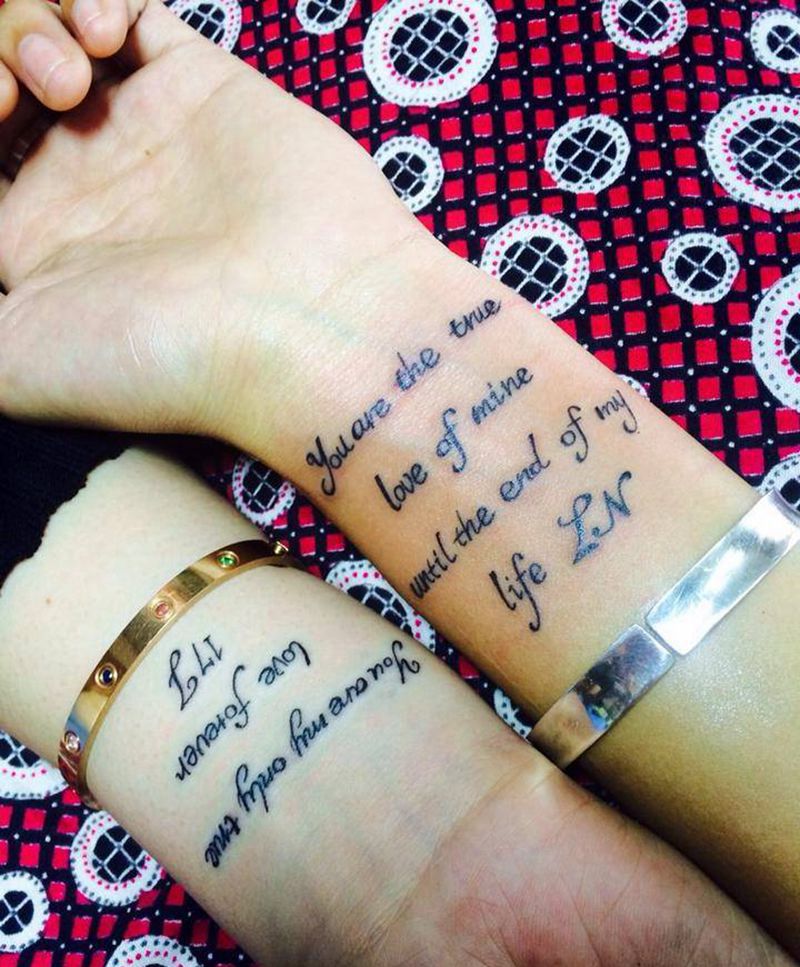 You are the true
love of mine
until the end of my
life LN
You are my only true
love forever